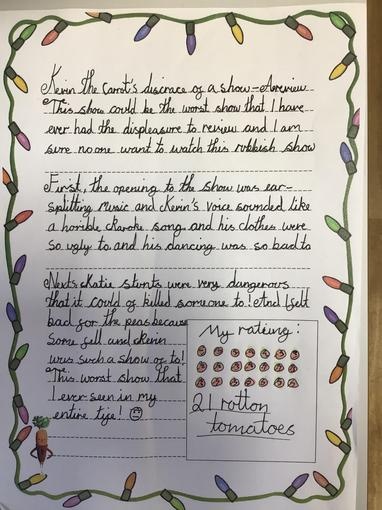 Kevin the Carrot's discrace of a show - A review
This show could be the worst show that I have
ever had the displeasure to reveiw and I am
sure no one want to watch this rubbish show
First, the opening to the show was ear-
splitting music and Kevin's voice sounded like
a horrible Karoke song and his clothes were
so ugly to and his dancing was so bad to
Next, Katie stunts were very dangerous
that it could of killed someone to! And I felt
bad for the peas because
some fell and Kevin
was such a show of to!
This worst show that
I ever seen in my
entire life!
My rateing:
21 rotton
tomatoes